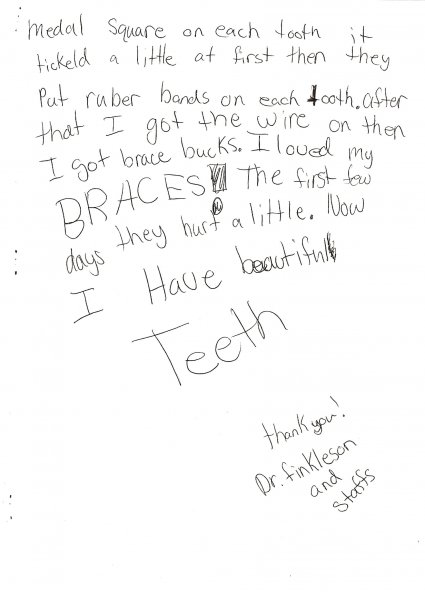 medal Square on each tooth it
tickeld a little at first then they
Put ruber bands on each tooth. after
that I got the wire on then
I got brace bucks. I loved my
BRACES! The first few
days they hurt a little. Now
I Have beautiful
Teeth
thank you!
Dr. finkleson
and
staffs